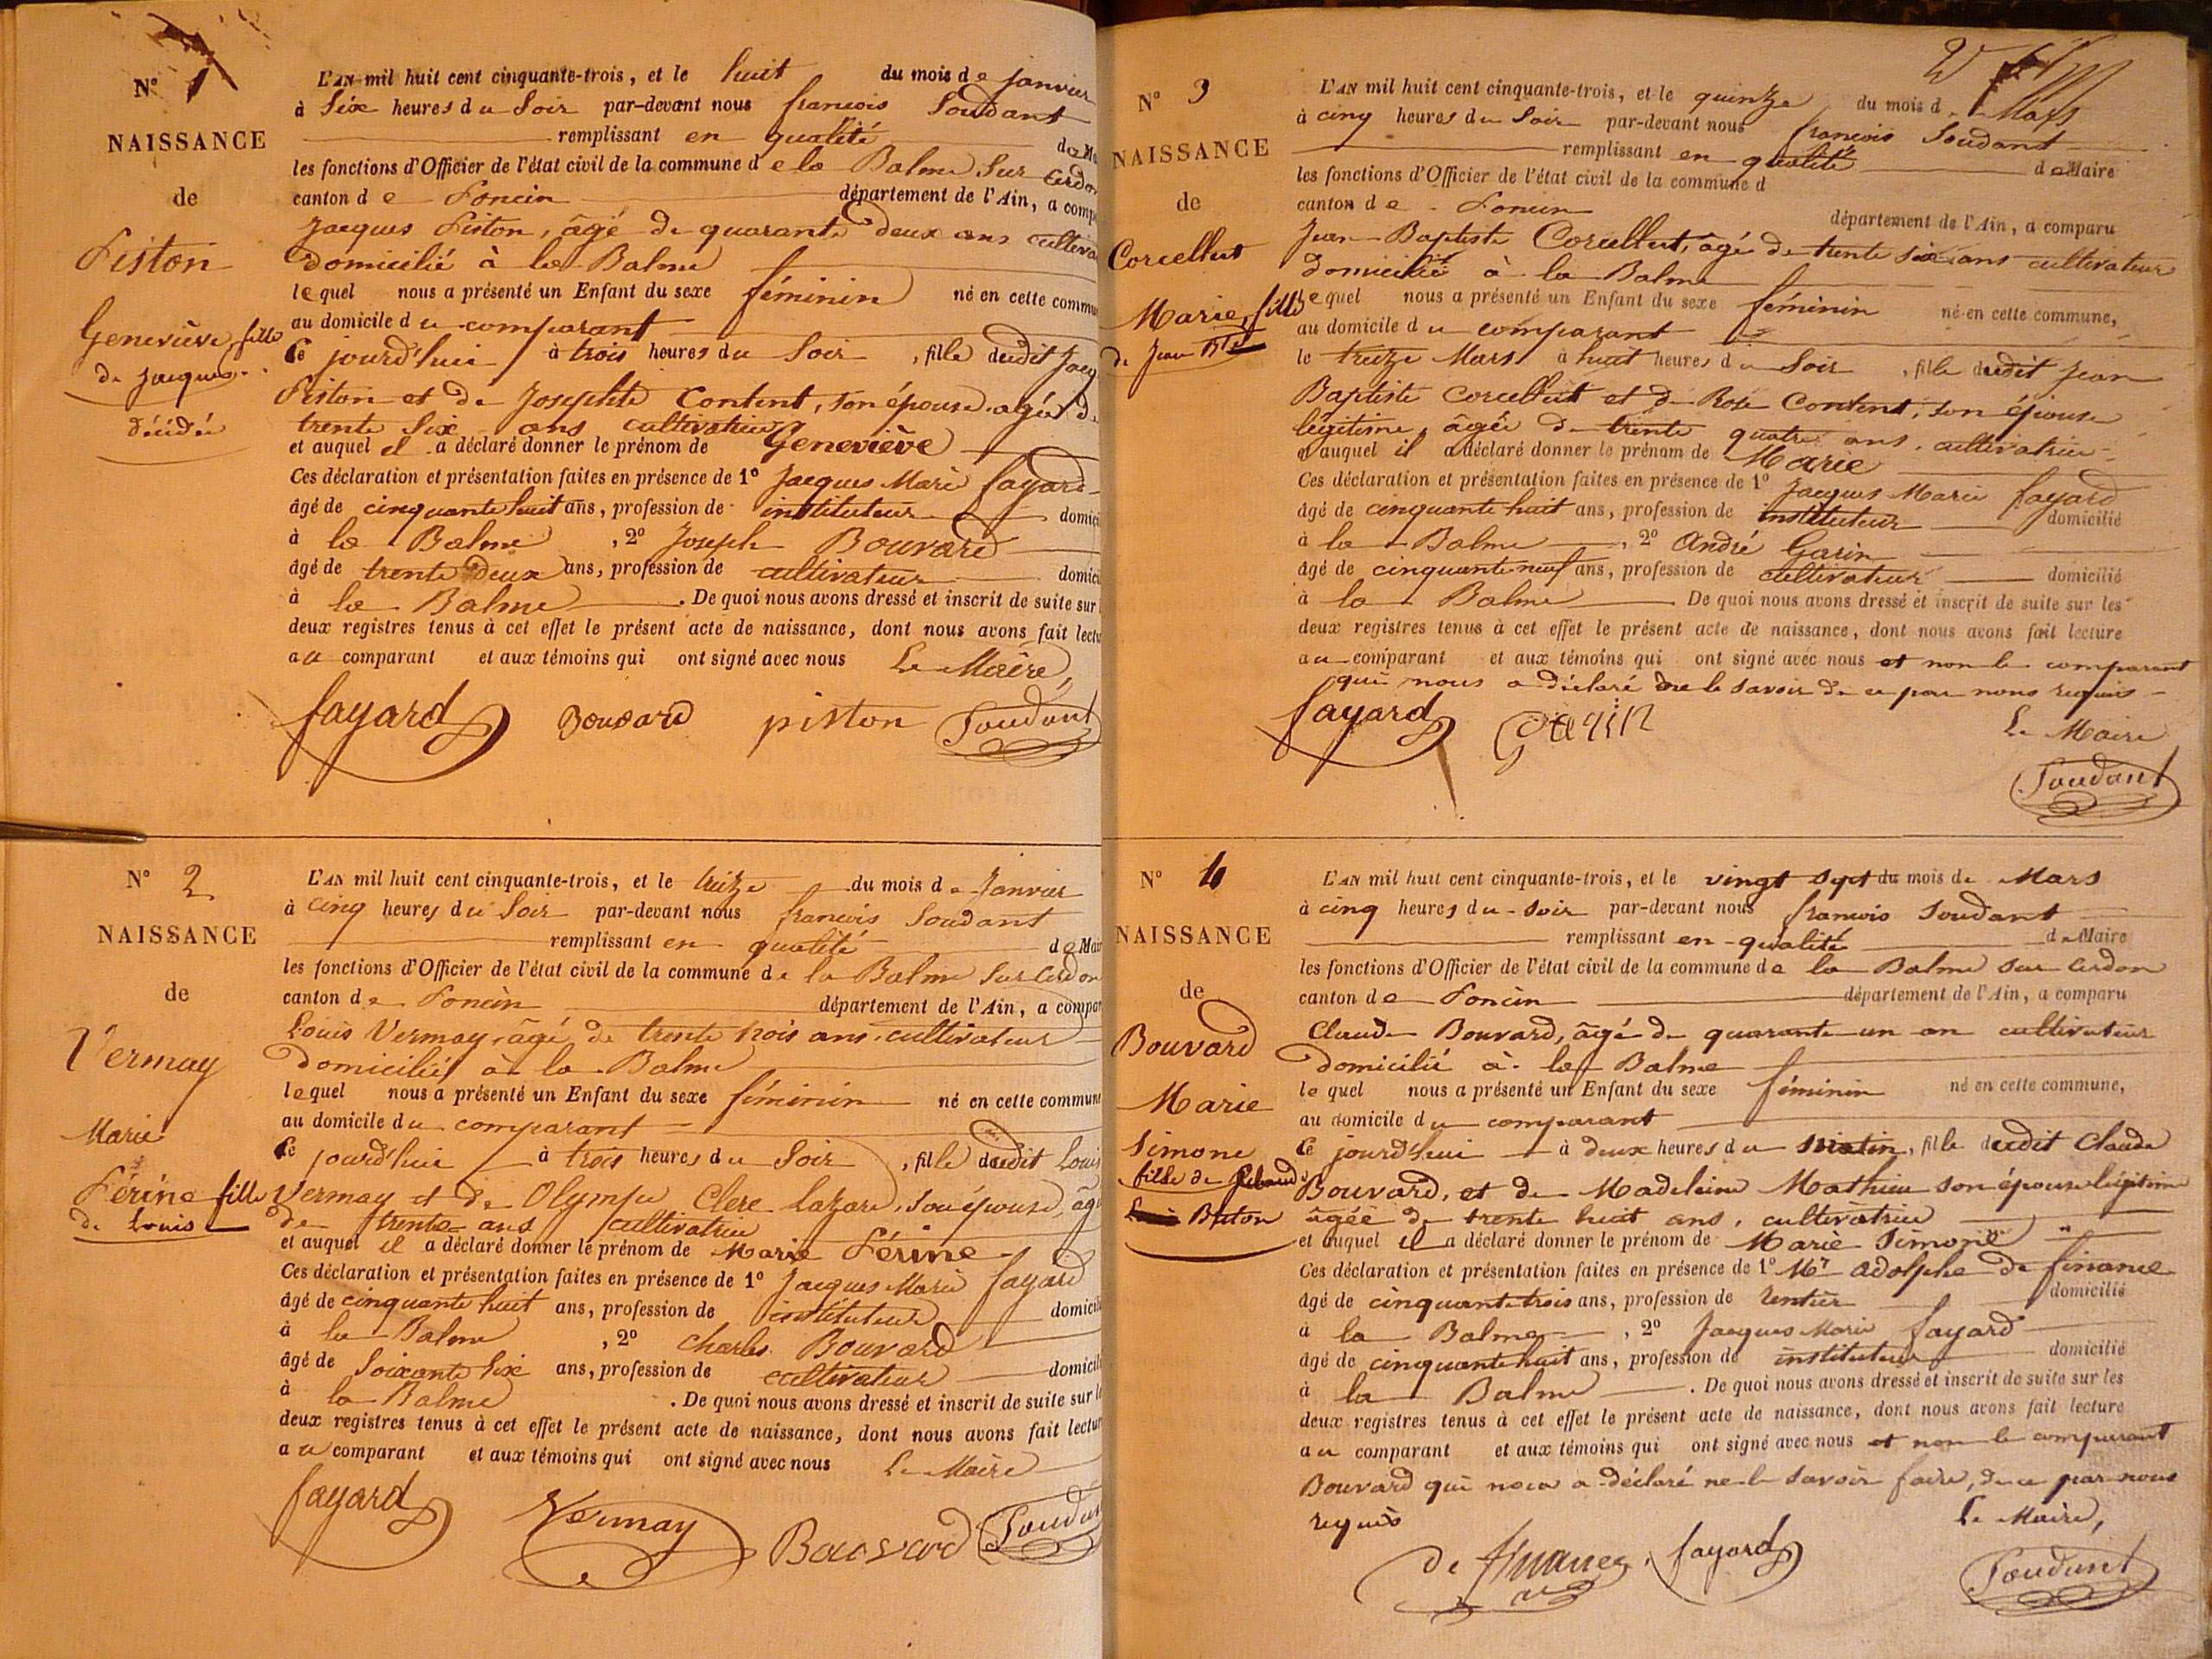 N° 1
NAISSANCE
de
Piston
Geneviève, fille
de Jacques.
décédée
L'AN mil huit cent cinquante-trois, et le huit du mois de janvier
à Six heures du Soir par-devant nous françois Soudant
remplissant en qualité de Ma
les fonctions d'Officier de l'état civil de la commune de la Balme Sur Cerdon
canton de Poncin département de l'Ain, a comp
Jacques Piston, âgé de quarante deux ans cultiva
domicilié à la Balme
lequel nous a présenté un Enfant du sexe féminin né en cette commu
au domicile du comparant
Ce jourd'hui à trois heures du Soir, fille dudit Jacq
Piston et de Josephte Content, son épouse, agée de
trente Six ans cultivatrice
et auquel il a déclaré donner le prénom de Geneviève
Ces déclaration et présentation faites en présence de 1° Jacques Marie fayard
âgé de cinquante huit ans, profession de instituteur domici
à la Balme, 2° Joseph Bouvard
âgé de trente Deux ans, profession de cultivateur domici
à la Balme. De quoi nous avons dressé et inscrit de suite sur
deux registres tenus à cet effet le présent acte de naissance, dont nous avons fait lectu
au comparant et aux témoins qui ont signé avec nous Le Maire,
fayard Bouvard piston Soudant
N° 2
NAISSANCE
de
Vermay
Marie
Périne fille
de Louis
L'AN mil huit cent cinquante-trois, et le treize du mois de Janvier
à cinq heures du Soir par-devant nous françois Soudant
remplissant en qualité de Mai
les fonctions d'Officier de l'état civil de la commune de la Balme Sur Cerdon
canton de Poncin département de l'Ain, a compar
Louis Vermay, âgé de trente trois ans, cultivateur
domicilié à la Balme
lequel nous a présenté un Enfant du sexe féminin né en cette commun
au domicile du comparant
Ce jourd'hui à trois heures du Soir, fille dudit Louis
Vermay et de Olympe Clere Lazare, son épouse, âg
de trente ans cultivatrice
et auquel il a déclaré donner le prénom de Marie Périne
Ces déclaration et présentation faites en présence de 1° Jacques Marie fayard
âgé de cinquante huit ans, profession de instituteur domicili
à la Balme, 2° Charles Bouvard
âgé de Soixante Six ans, profession de cultivateur domicili
à la Balme. De quoi nous avons dressé et inscrit de suite sur le
deux registres tenus à cet effet le présent acte de naissance, dont nous avons fait lectur
au comparant et aux témoins qui ont signé avec nous Le Maire
fayard Vermay Bouvard Soudan
N° 3
NAISSANCE
de
Corcellut
Marie, fille
de Jean Bte
L'AN mil huit cent cinquante-trois, et le quinze du mois de Mars
à cinq heures du Soir par-devant nous françois Soudant
remplissant en qualité de Maire
les fonctions d'Officier de l'état civil de la commune d
canton de Poncin département de l'Ain, a comparu
Jean Baptiste Corcellut, âgé de trente six ans cultivateur
domicilié à la Balme
lequel nous a présenté un Enfant du sexe féminin né en cette commune,
au domicile du comparant
le treize Mars à huit heures du Soir, fille dudit Jean
Baptiste Corcellut et de Rose Content, son épouse
légitime, âgée de trente quatre ans, cultivatrice
et auquel il a déclaré donner le prénom de Marie
Ces déclaration et présentation faites en présence de 1° Jacques Marie fayard
âgé de cinquante huit ans, profession de instituteur domicilié
à la Balme, 2° André Garin
âgé de cinquante neuf ans, profession de cultivateur domicilié
à la Balme De quoi nous avons dressé et inscrit de suite sur les
deux registres tenus à cet effet le présent acte de naissance, dont nous avons fait lecture
au comparant et aux témoins qui ont signé avec nous et non le comparant
qui nous a déclaré ne le savoir de ce par nous requis
Le Maire
fayard Garin
Soudant
N° 4
NAISSANCE
de
Bouvard
Marie
Simone
fille de
Buton
L'AN mil huit cent cinquante-trois, et le vingt sept du mois de Mars
à cinq heures du soir par-devant nous françois Soudant
remplissant en qualité de Maire
les fonctions d'Officier de l'état civil de la commune de la Balme sur Cerdon
canton de Poncin département de l'Ain, a comparu
Claude Bouvard, âgé de quarante un an cultivateur
domicilié à la Balme
lequel nous a présenté un Enfant du sexe féminin né en cette commune,
au domicile du comparant
Ce jourd'hui à deux heures du matin, fille dudit Claude
Bouvard, et de Madeleine Mathieu son épouse légitime
âgée de trente huit ans, cultivatrice
et auquel il a déclaré donner le prénom de Marie Simone
Ces déclaration et présentation faites en présence de 1° Mr adolphe de finance
âgé de cinquante trois ans, profession de rentier domicilié
à la Balme, 2° Jacques Marie fayard
âgé de cinquante huit ans, profession de instituteur domicilié
à la Balme. De quoi nous avons dressé et inscrit de suite sur les
deux registres tenus à cet effet le présent acte de naissance, dont nous avons fait lecture
au comparant et aux témoins qui ont signé avec nous et non le comparant
Bouvard qui nous a déclaré ne le savoir faire, de ce par nous
requis Le Maire,
de finance fayard Soudant